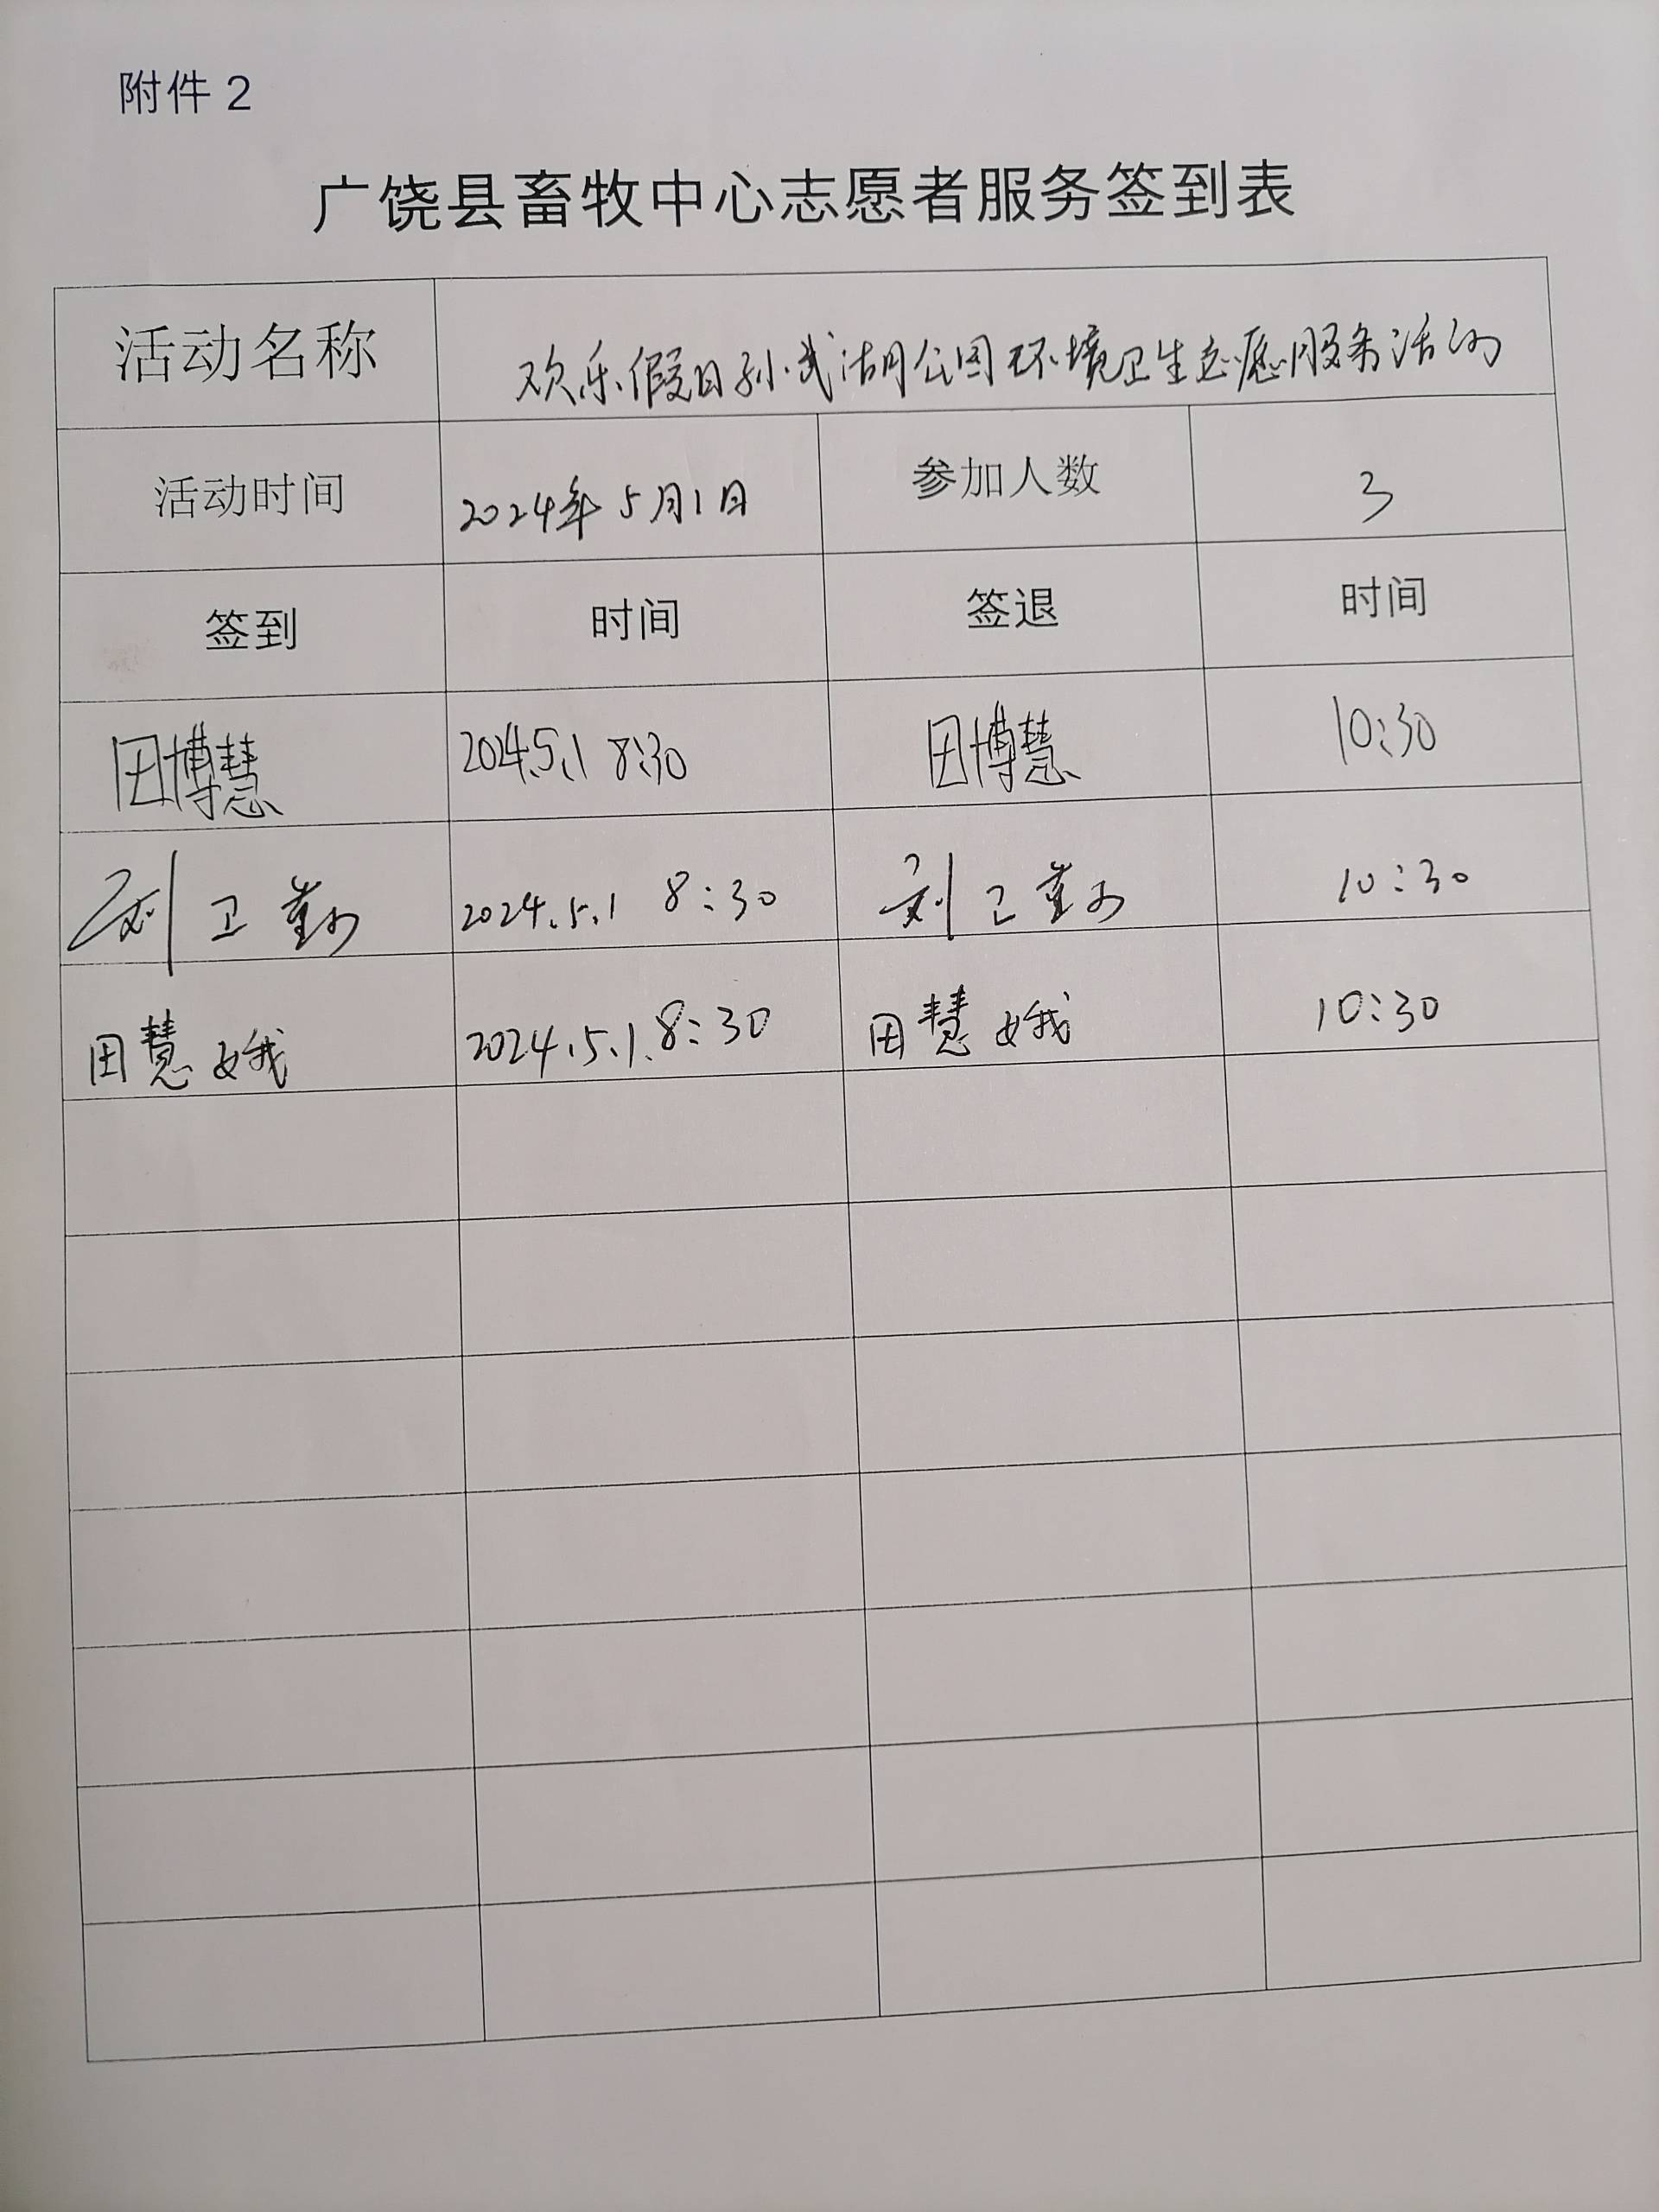 附件 2
广饶县畜牧中心志愿者服务签到表
活动名称 欢乐假日孙武湖公园环境卫生志愿服务活动
活动时间 2024年5月1日 参加人数 3
签到 时间 签退 时间
田博慧 2024.5.1 8:30 田博慧 10:30
刘卫勤 2024.5.1 8:30 刘卫勤 10:30
田慧娥 2024.5.1. 8:30 田慧娥 10:30